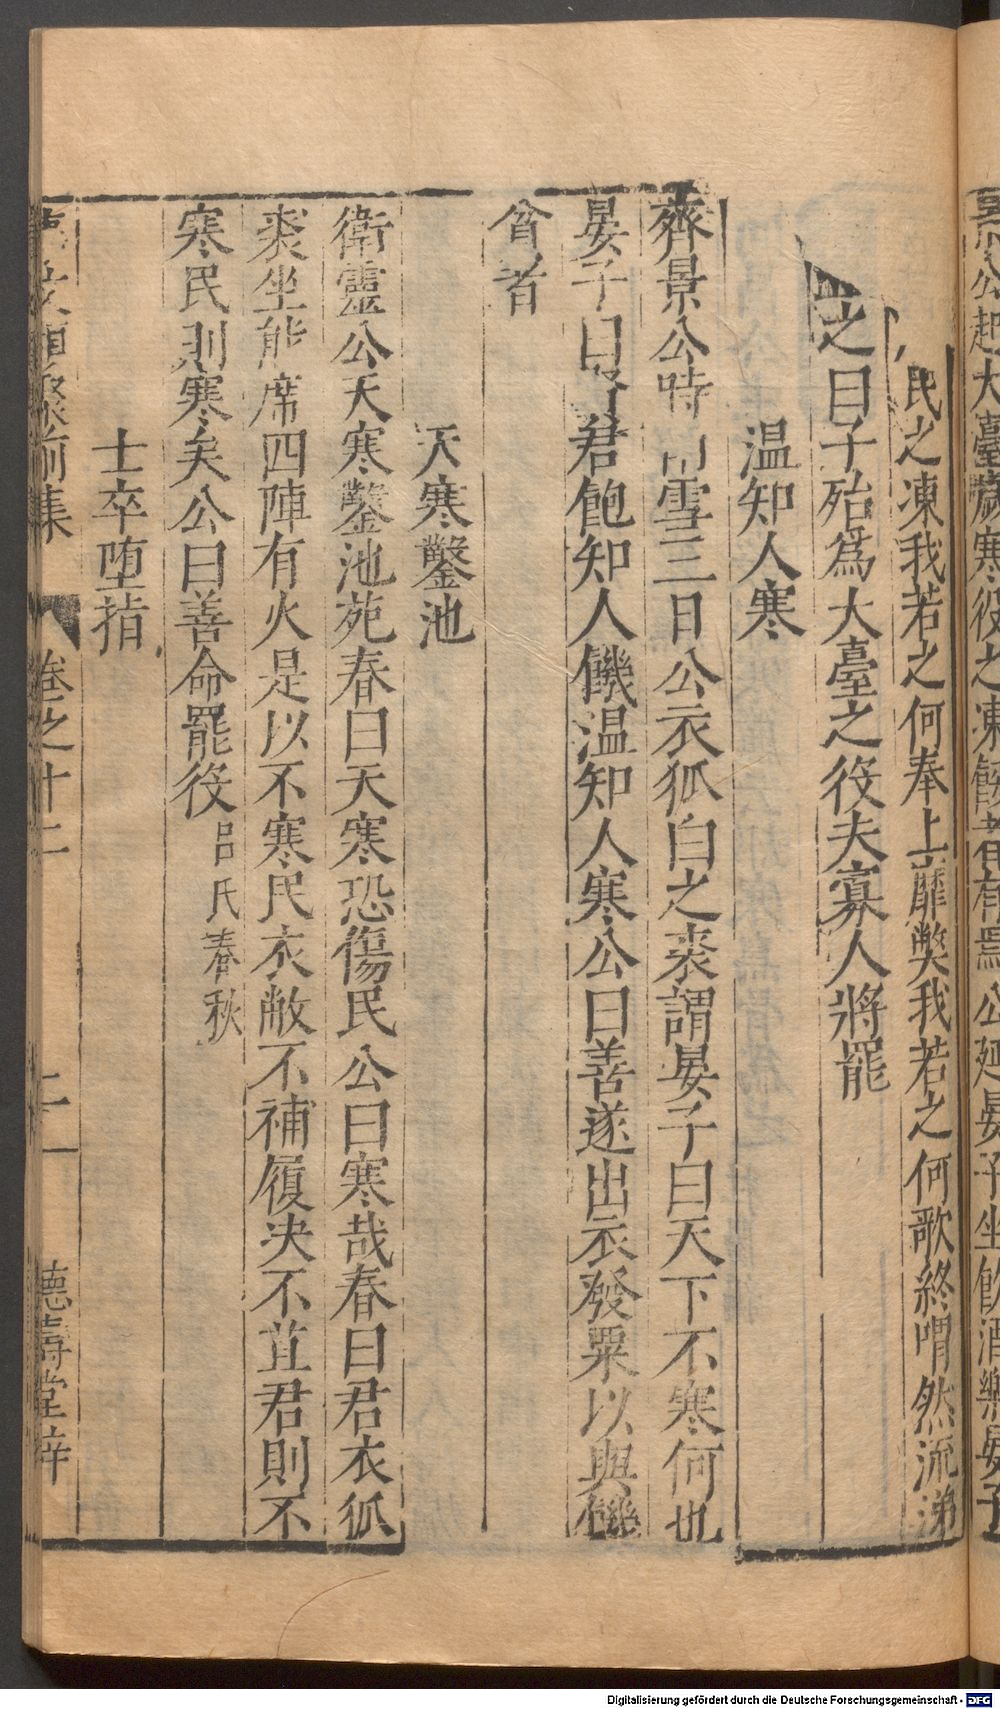 民之凍我若之何奉上靡獘我若之何歌終喟然流涕
之曰子殆爲大臺之役夫寡人將罷
温知人寒
齊景公時雨雪三日公衣狐白之裘謂晏子曰天下不寒何也
晏子曰賢君飽知人饑温知人寒公曰善遂出衣發粟以與饑
貧者
天寒鑿池
衛靈公天寒鑿池苑春曰天寒恐傷民公曰寒哉春曰君衣狐
裘坐熊席四陣有火是以不寒民衣敝不補履决不苴君則不
寒民則寒矣公曰善命罷役 吕氏春秋
士卒堕指
類聚前集 卷之十二 二十一 德壽堂梓
Digitalisierung gefördert durch die Deutsche Forschungsgemeinschaft - DFG